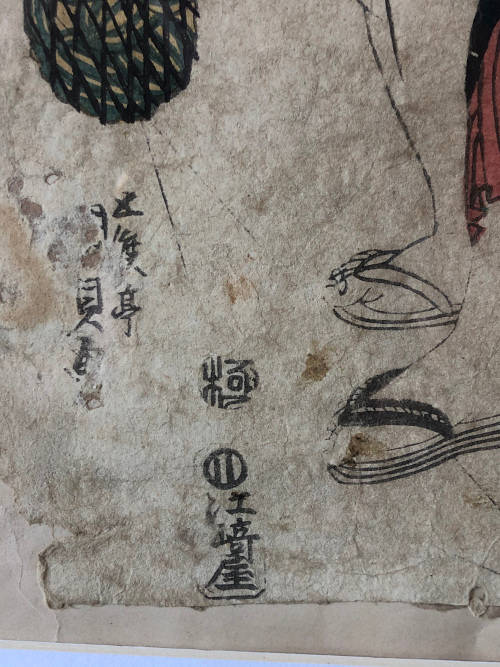 五渡亭
貞画
極
川
江崎屋